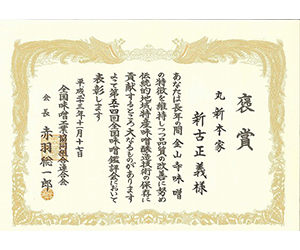 褒賞
丸新本家
新古正義様
あなたは長年の間金山寺味噌
の特徴を維持しつつ品質の改善に努め
伝統的地域特産味噌醸造技術の保存に
貢献するところ大なるものがあります
よって第五十四回全国味噌鑑評会において
表彰します
平成二十三年十一月十一日
全国味噌工業協同組合連合会
会長 赤羽総一郎